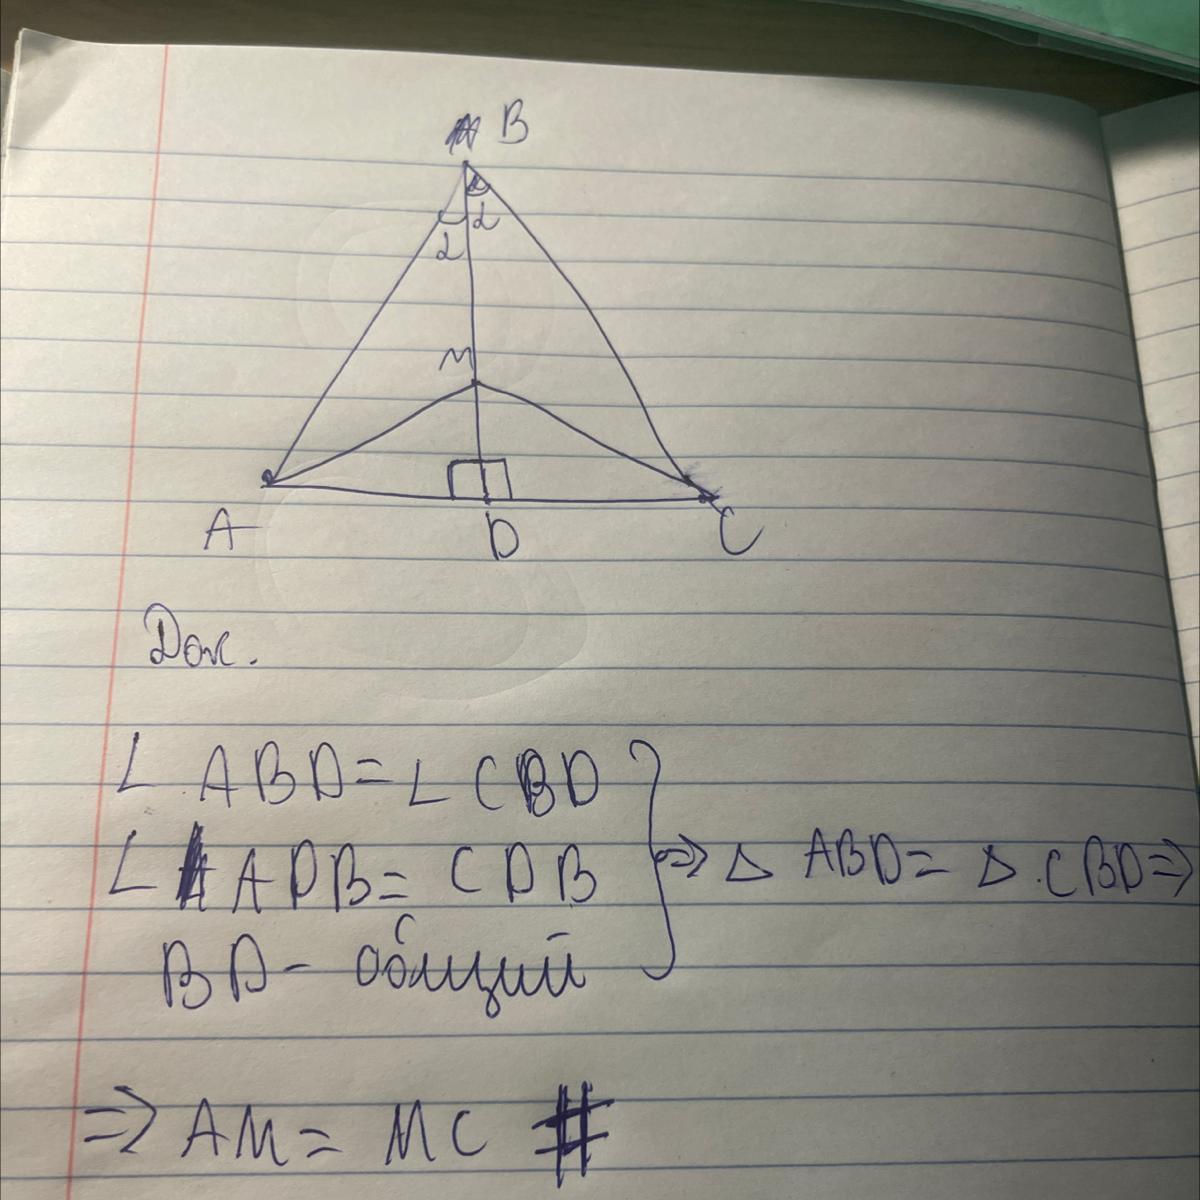 B
α
α
M
A
D
C
Док.
∠ ABD = ∠ CBD
∠ ADB = CDB
BD - общий
⇒ Δ ABD = Δ CBD ⇒
⇒ AM = MC #